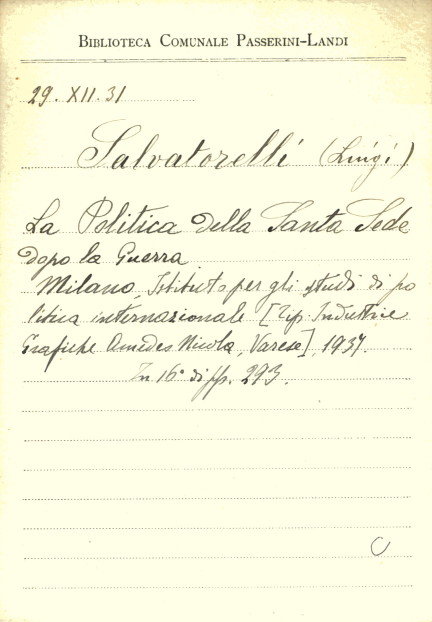 BIBLIOTECA COMUNALE PASSERINI-LANDI
29. XII. 31
Salvatorelli (Luigi)
La Politica della Santa Sede
dopo la Guerra
Milano, Istituto per gli studi di po
litica internazionale [Tip. Industrie
Grafiche Amedeo Nicola, Varese], 1937.
In 16° di pp. 293.
C